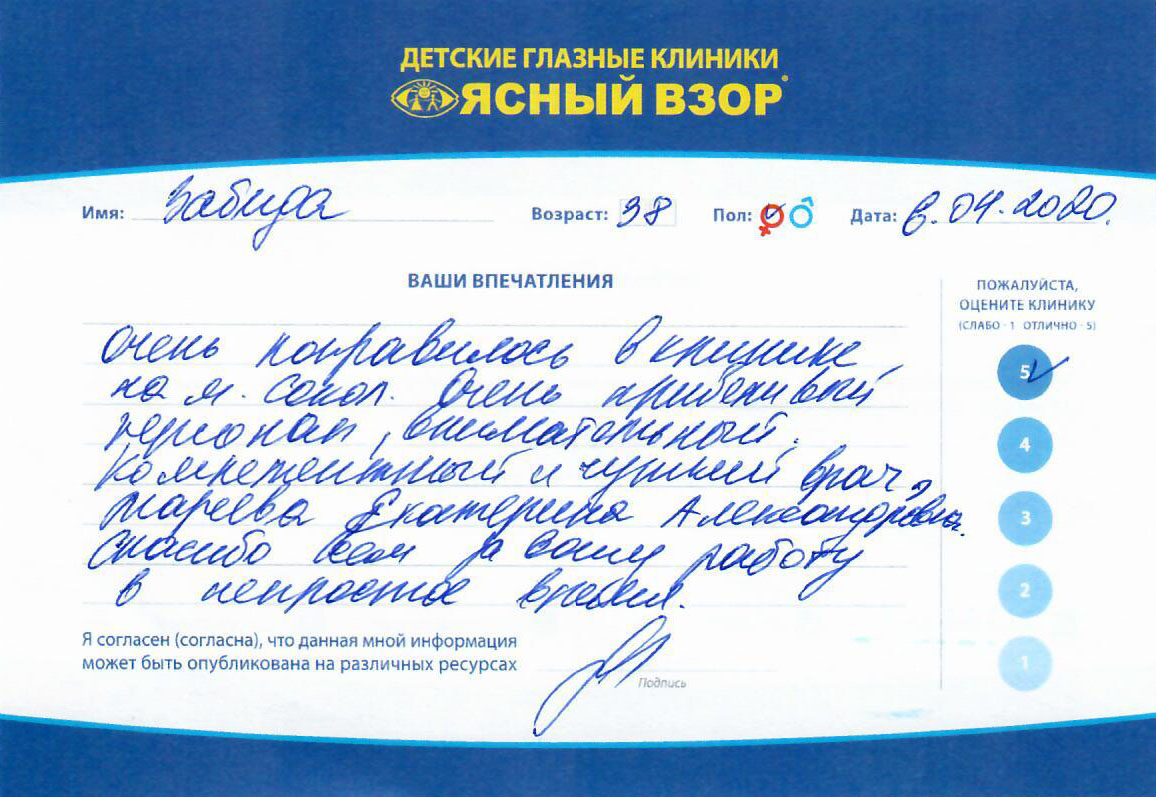 ДЕТСКИЕ ГЛАЗНЫЕ КЛИНИКИ
ЯСНЫЙ ВЗОР
Имя: Забида Возраст: 38 Пол: Дата: 6.04.2020.
ВАШИ ВПЕЧАТЛЕНИЯ
Очень понравилось в клинике
на м. Сокол. Очень
персонал, внимательный.
Компетентный и чуткий врач,
Мареева Екатерина Александровна.
Спасибо Вам за Вашу работу
в непростое время.
Я согласен (согласна), что данная мной информация
может быть опубликована на различных ресурсах
Подпись
ПОЖАЛУЙСТА,
ОЦЕНИТЕ КЛИНИКУ
(СЛАБО - 1 ОТЛИЧНО - 5)
5
4
3
2
1